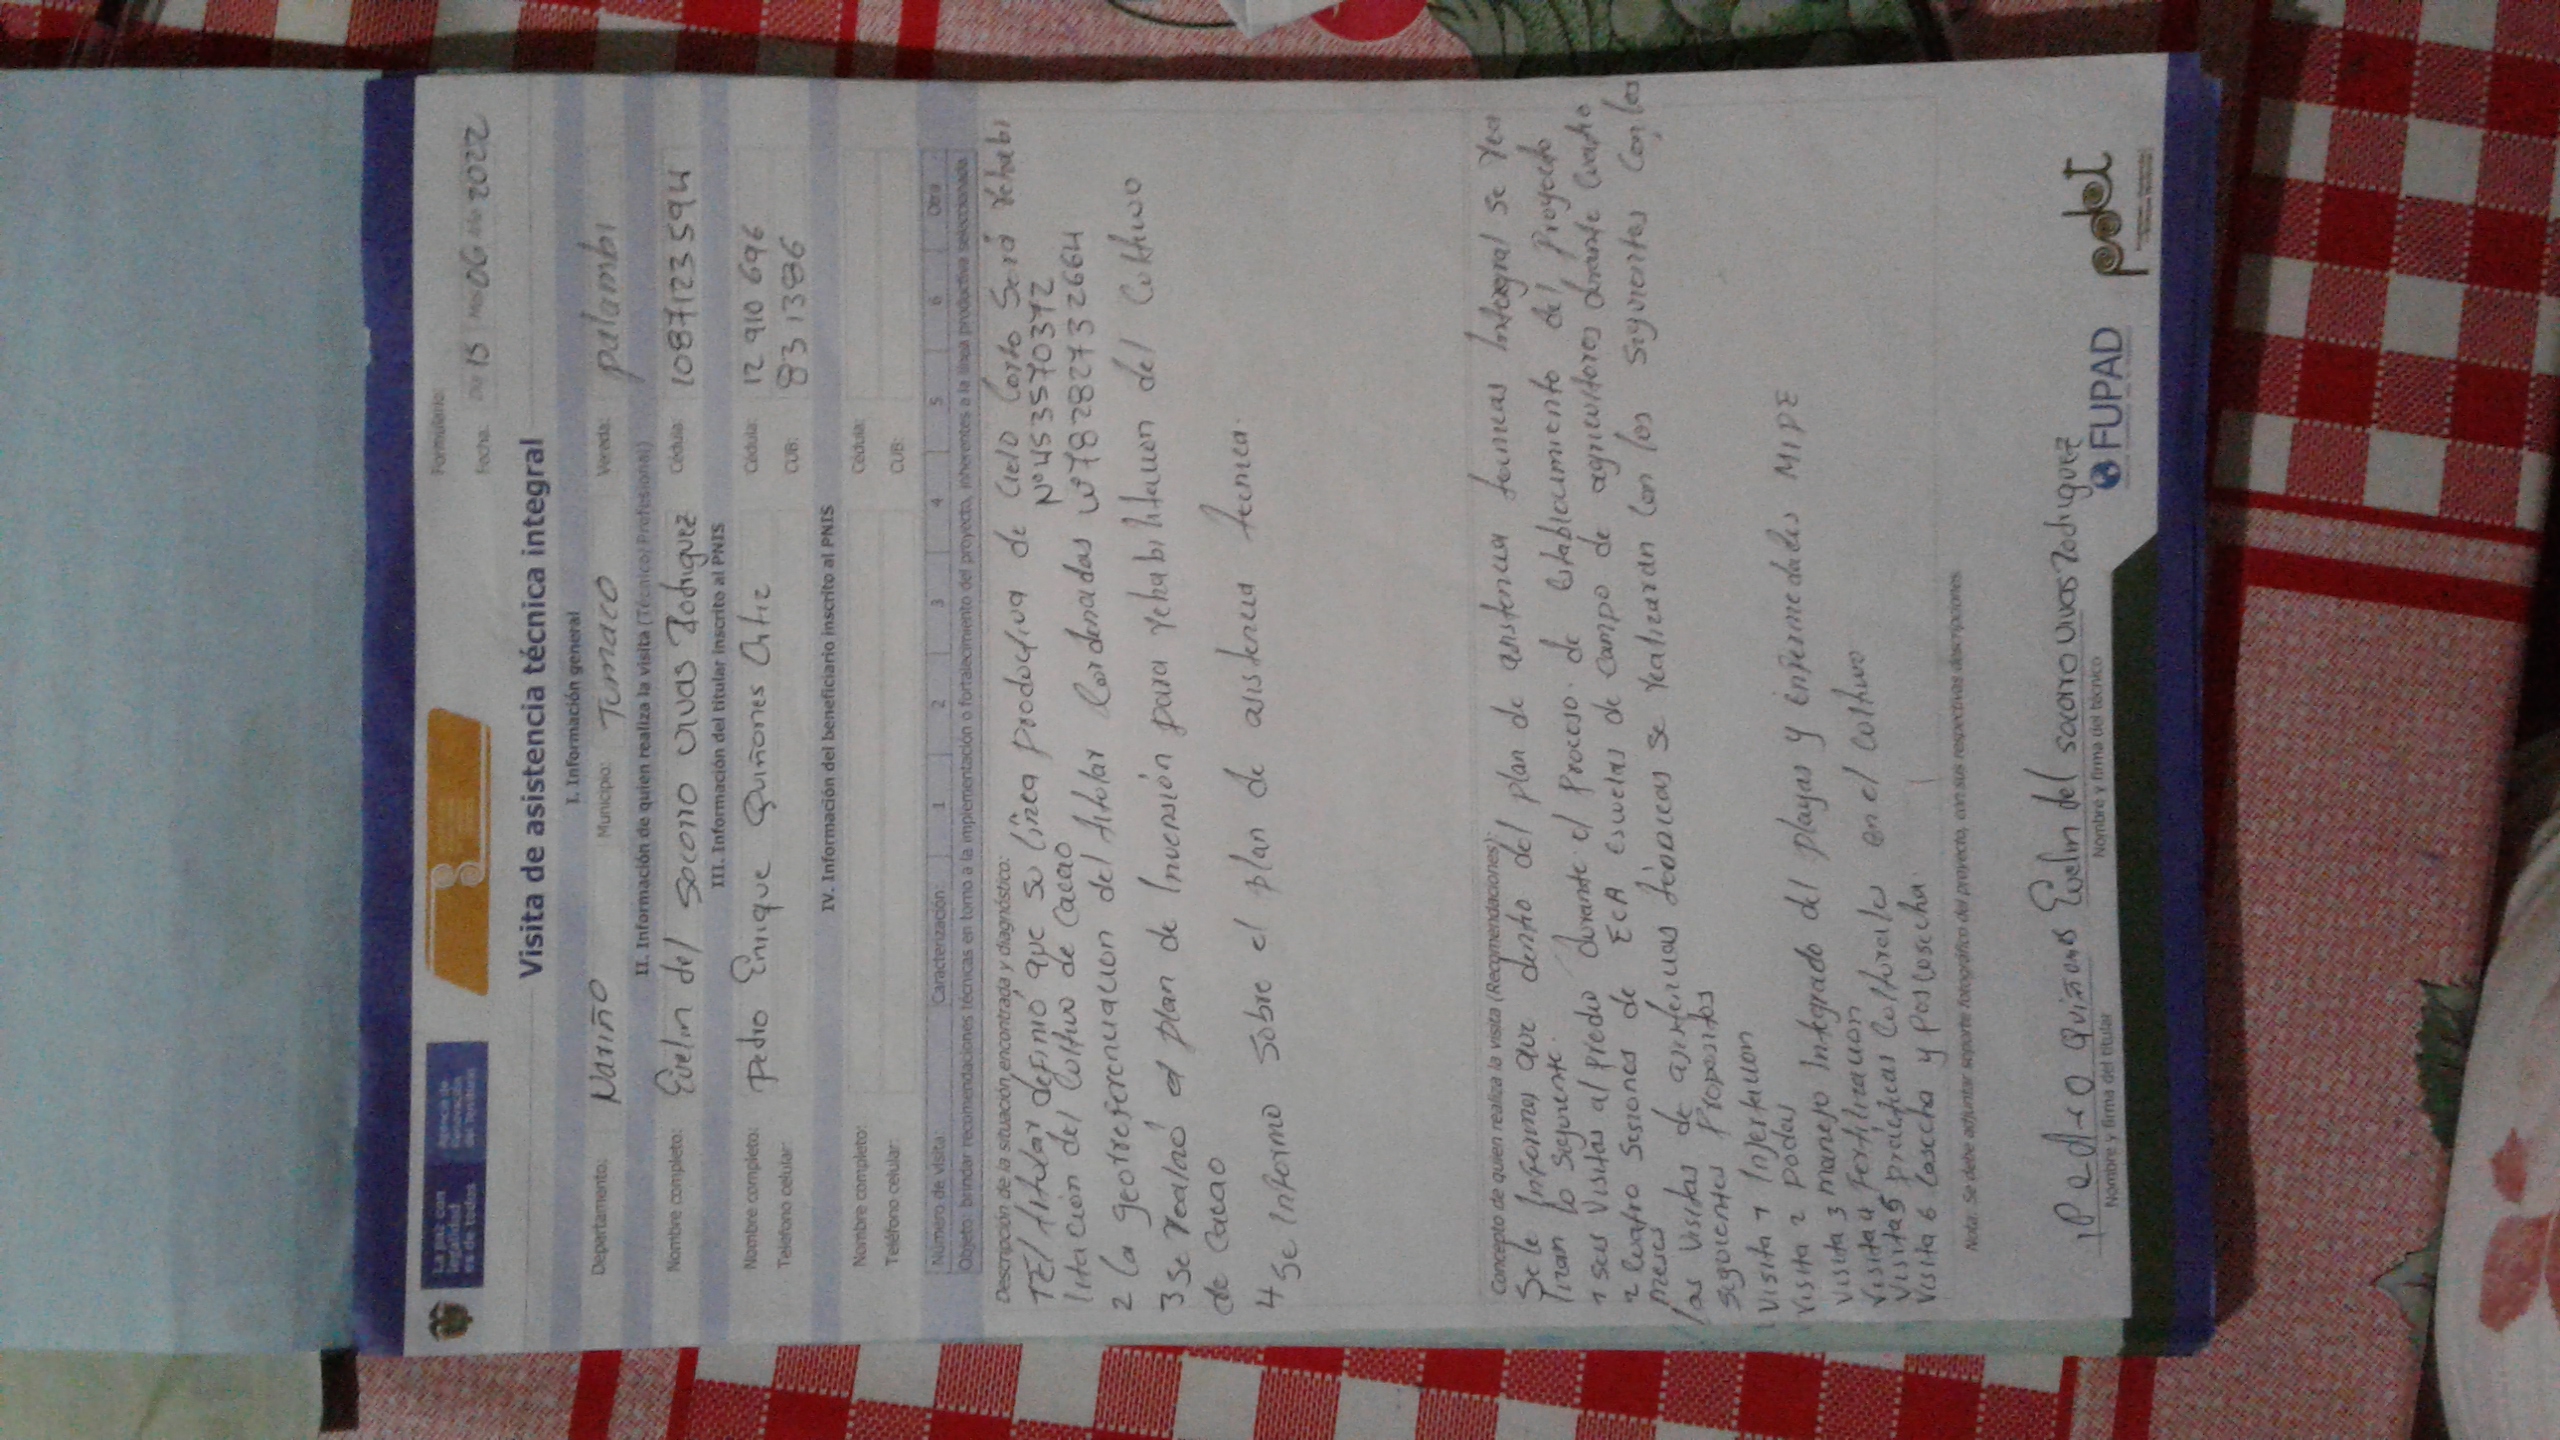 La paz con legalidad es de todos
Agencia de Renovación del Territorio
Formulario:
Fecha: Día 15 Mes 06 Año 2022
Visita de asistencia técnica integral
I. Información general
Departamento: Nariño Municipio: Tumaco Vereda: palambi
II. Información de quien realiza la visita (Técnico/Profesional)
Nombre completo: Evelin del socorro vivas Rodriguez Cédula: 1087123594
III. Información del titular inscrito al PNIS
Nombre completo: Pedro Enrique Quiñones Ortiz Cédula: 12 910 696
Teléfono celular: CUB: 83 13886
IV. Información del beneficiario inscrito al PNIS
Nombre completo: Cédula:
Teléfono celular: CUB:
Número de visita: Caracterización: 1 2 3 4 5 6 Otra
Objeto: brindar recomendaciones técnicas en torno a la implementación o fortalecimiento del proyecto, inherentes a la línea productiva seleccionada
Descripción de la situación encontrada y diagnóstico:
1 El titular definió que su línea productiva de Ciclo Corto Será rehabi
litación del Cultivo de Cacao N° 453570372
2 la georreferenciacion del titular Cordenadas W° 7828273 2664
3 Se realizó el plan de Inversión para rehabilitacion del Cultivo
de Cacao
4 Se Informo Sobre el plan de asistencia tecnica.
Concepto de quien realiza la visita (Recomendaciones):
Se le Informa que dentro del plan de asistencia tecnicas Integral se rea
lizan lo Seguiente.
1 seis Visitas al predio durante el Proceso de establecimiento del Proyecto
2 Cuatro Sesiones de ECA escuelas de Campo de agricultores durante Cuatro
meses
las Visitas de asistencias técnicas se realizaran Con los Siguientes Con los
Siguientes Propositos
Visita 1 Injertacion
Visita 2 podas
Visita 3 manejo Integrado del plagas y enfermedades MIPE
Visita 4 Fertilizacion
Visita 5 practicas Culturales en el Cultivo
Visita 6 Cosecha y PosCosecha.
Nota: Se debe adjuntar soporte fotográfico del proyecto, con sus respectivas descripciones
Pedro Quiñones Evelin del socorro vivas Rodriguez
Nombre y firma del titular Nombre y firma del técnico
FUPAD pdet